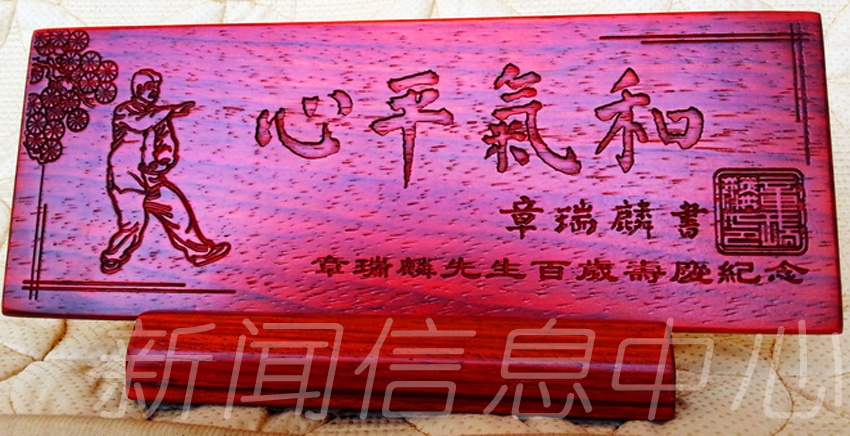 心平氣和
章瑞麟書
章瑞麟先生百歲壽慶紀念
新闻信息中心